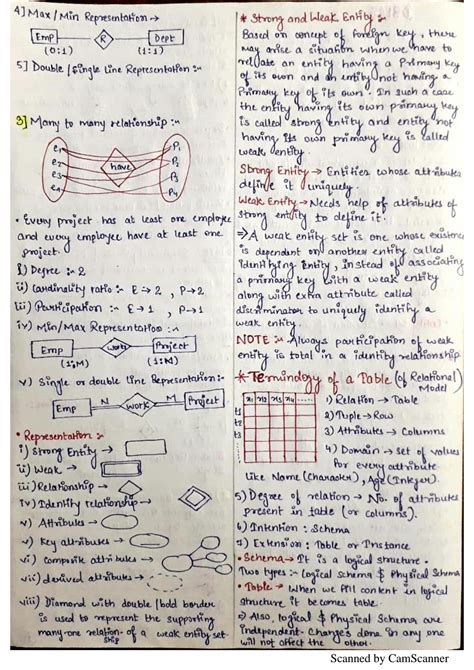 4] Max/Min Representation →
Emp R Dept
(0:1) (1:1)
5] Double/single Line Representation :-
3] Many to many relationship :-
e1 e2 e3 e4 have P1 P2 P3 P4
• Every project has at least one employee
and every employee have at least one
project.
i) Degree :- 2
ii) Cardinality ratio :- E → 2, P → 2
iii) Participation :- E → 1, P → 1
iv) Min/Max Representation :-
Emp works Project
(1:M) (1:M)
v) Single or double line Representation :-
Emp N work M Project
• Representation :-
i) Strong Entity →
ii) Weak →
iii) Relationship →
iv) Identity relationship →
v) Attributes →
v) Key attributes →
vi) composite attributes →
vii) derived attributes →
viii) Diamond with double/bold border
is used to represent the supporting
many-one relation- of a weak entity set.
ship
* Strong and Weak Entity :-
Based on concept of foreign key, there
may arise a situation when we have to
relate an entity having a Primary key
of its own and an entity not having a
Primary key of its own. In such a case
the entity having its own primary key
is called strong entity and entity not
having its own primary key is called
weak entity.
Strong Entity → Entities whose attributes
define it uniquely.
Weak Entity → Needs help of attributes of
strong entity to define it.
⇒ A weak entity set is one whose existence
is dependent on another entity called
identifying Entity, instead of associating
a primary key with a weak entity
along with extra attribute called
discriminator to uniquely identify a
weak entity.
NOTE :- Always participation of weak
entity is total in a identity relationship
* Terminology of a Table (of Relational
Model)
x1 x2 x3 x4 ....
t1
t2
t3
1) Relation → Table
2) Tuple → Row
3) Attributes → Columns
4) Domain → set of values
for every attribute
like Name (character), Age (Integer).
5) Degree of relation → No. of attributes
present in table (or columns).
6) Intention : Schema
7) Extension : Table or Instance
• Schema → It is a logical structure.
Two types :- logical schema & Physical Schema
• Table → When we fill content in logical
structure it becomes table.
⇒ Also, logical & Physical schema are
independent. Changes done in any one
will not affect the other.
Scanned by CamScanner